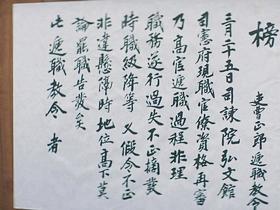 榜
吏曹正郎遞職教令
三月二十五日司諫院弘文館
司憲府現職官僚資格再審
乃高官遞職過程非理
職務遂行過失不正摘發
時職級降等 又假令不正
非違懸時地位高下莫
論罷職告發矣
此遞職教令 者